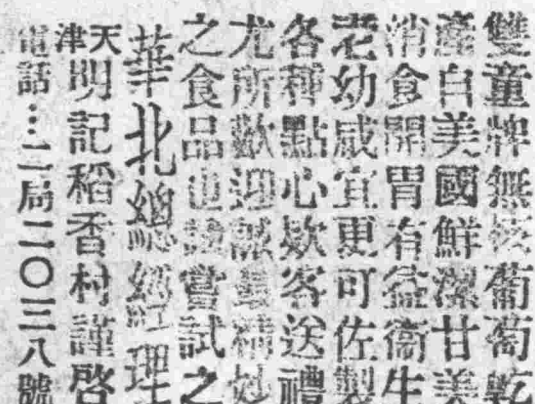 雙童牌無核葡萄乾
產自美國鮮潔甘美
消食開胃有益衛生
老幼咸宜更可佐製
各種點心欵客送禮
尤所歡迎誠精妙
之食品也請嘗試之
華北總經理
天津明記稻香村謹啓
電話：二局二〇三八號